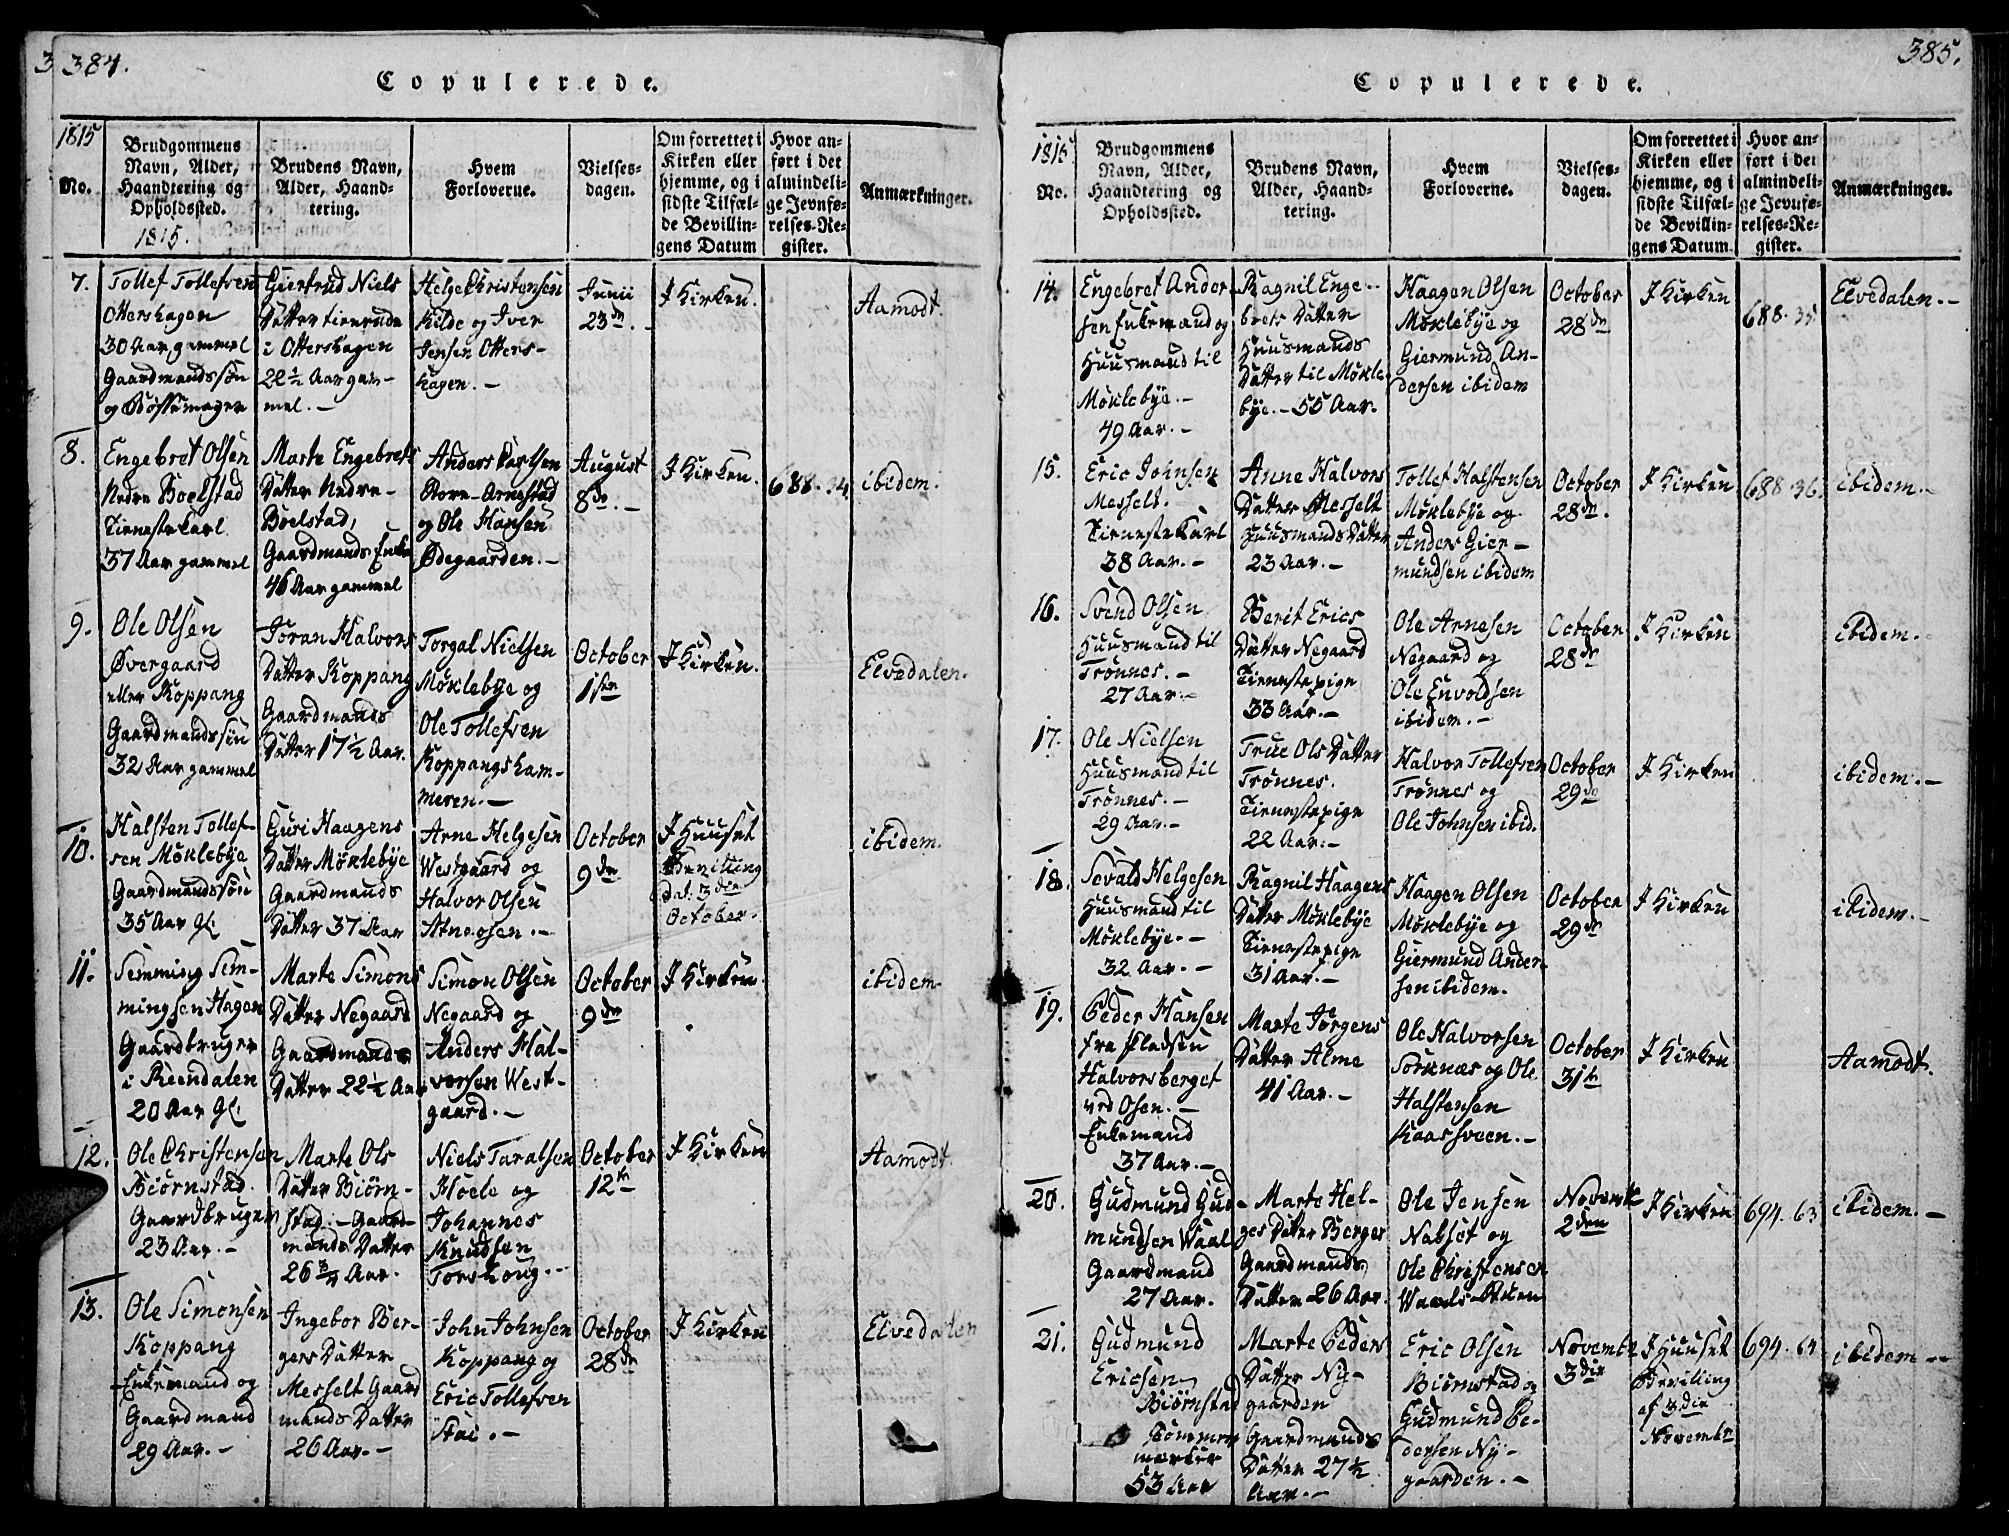 384.
Copulerede.
1815
No.
Brudgommens Navn, Alder, Haandtering og Opholdssted.
Brudens Navn, Alder, Haandtering.
Hvem Forloverne.
Vielsesdagen.
Om forrettet i Kirken eller hjemme, og i sidste Tilfælde Bevillingens Datum
Hvor anført i det almindelige Jevnførelses-Register.
Anmærkninger.
1815.
7.
Tollef Tollefsen
Ottershagen
30 Aar gammel
Gaardmandssøn
og Bøssemager
Giertrud Niels
Datter tienende
i Ottershagen
22½ Aar gam-
mel.-
Helge Christensen
Kilde og Iver
Jensen Otters-
hagen.-
Junii
23de.
I Kirken.
Aamodt.
8.
Engebret Olsen
Nedre Boelstad
Tieneste Karl
37 Aar gammel
Marte Engebrets
Datter Nedre-
Boelstad,
Gaardmands Enke
46 Aar gammel
Anders Carlsen
Store-Arnestad
og Ole Hansen
Ødegaarden.-
August
8de.-
I Kirken.
688.34
ibidem.
9.
Ole Olsen
Øvergaard
eller Koppang
Gaardmandssøn
32 Aar gammel
Joran Halvors
Datter Koppang
Gaardmands
Datter 17½ Aar.
Torgal Nielsen
Møklebye og
Ole Tollefsen
Koppangskam-
meren.-
October
1ste
I Kirken.
Elvedalen.
10.
Halsten Tollef-
sen Møklebye
Gaardmandssøn
35 Aar gl.
Guri Haagens
Datter Møklebye
Gaardmands
Datter 37 Aar
Arne Helgesen
Westgaard og
Halvor Olsen
Atneosen.-
October
9de
I Huuset
Bevilling
Dat. 3die
October.
ibidem.
11.
Semming Sem-
mingsen Hagen
Gaardbruger
i Reendalen
20 Aar gl.
Marte Simons
Datter Negaard
Gaardmands
Datter 22½ Aar
Simon Olsen
Negaard og
Anders Hal-
vorsen West-
gaard.-
October
9de
I Kirken.
ibidem.
12.
Ole Christensen
Biørnstad.
Gaardbruger
23 Aar.-
Marte Ols
Datter Biørn-
stad.-Gaard-
mands Datter
26¾ Aar.
Niels Taralsen
Hoele og
Johannes
Knudsen
Torskoug.-
October
12te
I Kirken
Aamodt.
13.
Ole Simonsen
Koppang
Enkemand og
Gaardmand
29 Aar.-
Ingebor Ber-
gers Datter
Messelt Gaard
mands Datter
26 Aar.-
John Johnsen
Koppang og
Eric Tollefsen
Stai.-
October
28de
I Kirken
Elvedalen
385.
Copulerede.
1815
No.
Brudgommens Navn, Alder, Haandtering og Opholdssted.
Brudens Navn, Alder, Haandtering.
Hvem Forloverne.
Vielsesdagen.
Om forrettet i Kirken eller hjemme, og i sidste Tilfælde Bevillingens Datum.
Hvor anført i det almindelige Jevnførelses-Register.
Anmærkninger.
14.
Engebret Ander-
sen Enkemand og
Huusmand til
Møklebye.-
49 Aar.-
Ragnil Enge-
brets Datter
Huusmands
Datter til Møkle-
bye.-55 Aar.
Haagen Olsen
Møklebye og
Giermund An-
dersen ibidem
October
28de
I Kirken
688.35
Elvedalen.-
15.
Eric Johnsen
Messelt.-
Tieneste Karl
38 Aar.-
Anne Halvors
Datter Messelt
Huusmands Datter
23 Aar.-
Tollef Halstensen
Møklebye og
Anders Gier-
mundsen ibidem
October
28de.
I Kirken
688.36.
ibidem.-
16.
Svend Olsen
Huusmand til
Trønnes.-
27 Aar.-
Berit Erics
Datter Negaard
Tienestepige
33 Aar.-
Ole Arnesen
Negaard og
Ole Envoldsen
ibidem.-
October
28de
I Kirken
ibidem.-
17.
Ole Nielsen
Huusmand til
Trønnes.-
29 Aar.-
True Ols Datter
Trønnes.
Tienestepige
22 Aar.-
Halvor Tollefsen
Trønnes og
Ole Johnsen ibid.
October
29de
I Kirken
ibidem.-
18.
Sevald Helgesen
Huusmand til
Møklebye.-
32 Aar.-
Ragnil Haagens
Datter Møklebye
Tienestepige
31 Aar.-
Haagen Olsen
Møklebye og
Giermund Ander-
sen ibidem.
October
29de
I Kirken
ibidem.-
19.
Peder Hansen
fra Pladsen
Halvorsberget
ved Osen.-
Enkemand
37 Aar.-
Marte Jørgens
Datter Alme
41 Aar.-
Ole Halvorsen
Sorknæs og Ole
Halstensen
Kaassveen.-
October
31te
I Kirken
Aamodt.
20.
Gudmund Gud-
mundsen Waal
Gaardmand
27 Aar.
Marte Hel-
ges Datter Berger
Gaardmands
Datter 26 Aar.
Ole Jensen
Nabset og
Ole Christensen
November
2den
I Kirken
694.63
ibidem.-
21.
Gudmund
Ericsen
Biørnstad
53 Aar
Marte Peders
Datter Ny-
gaarden
Gaardmands
Datter 27½
Aar.-
Eric Olsen
Biørnstad og
Gudmund Pe-
dersen Ny-
gaarden.-
November
3die
I Huuset
Bevilling
af 3die
November
694.64
ibidem.-